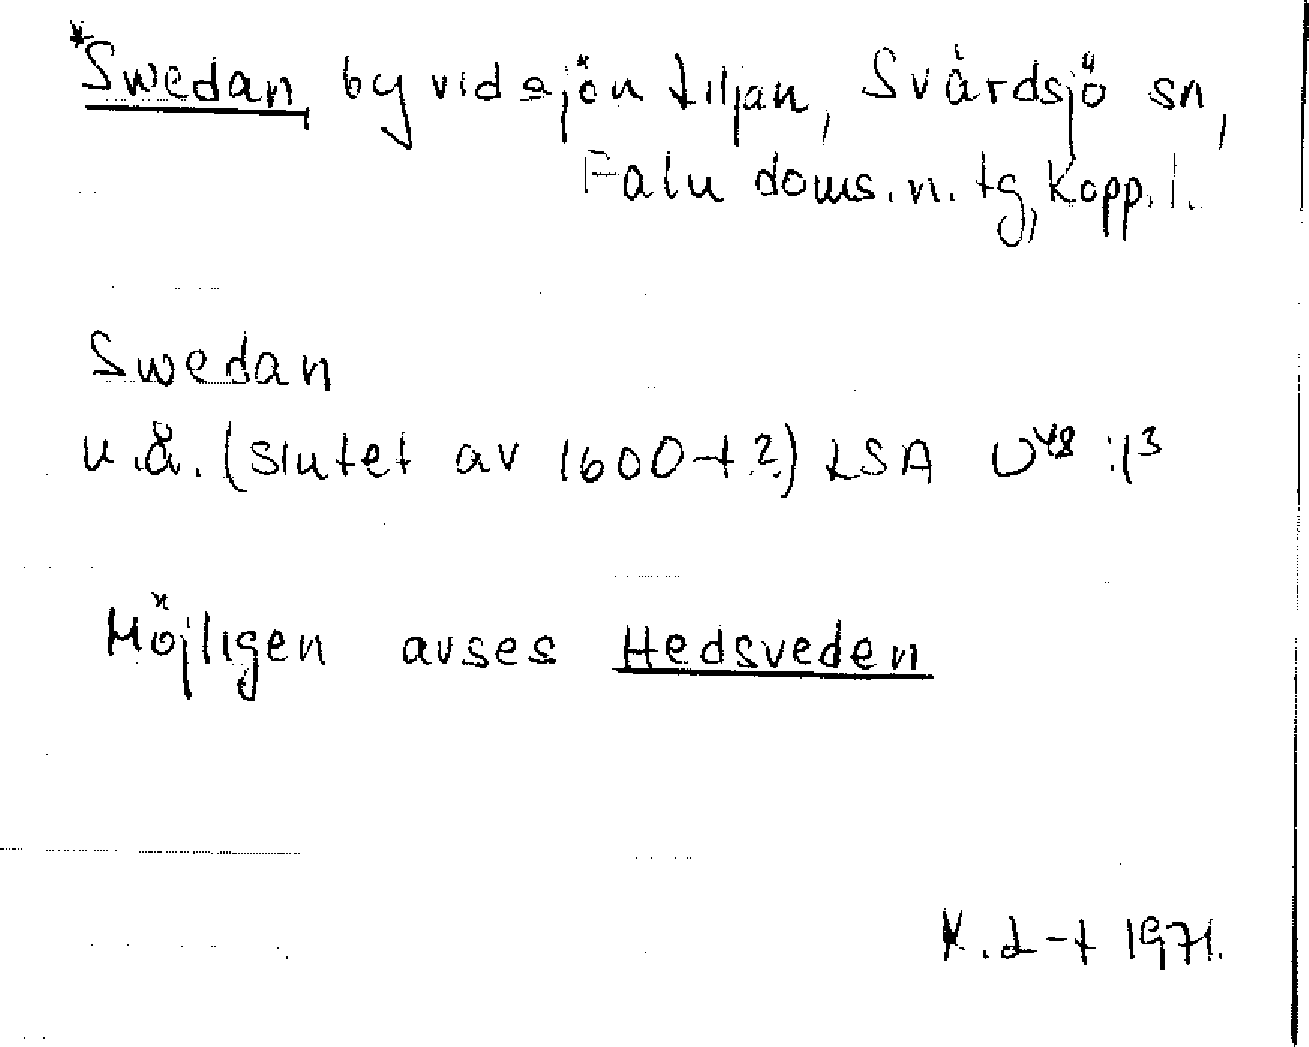 *Swedan by vid sjön Liljan, Svärdsjö sn,
Falu doms.n. tg, Kopp. l.
Swedan
u.å. (slutet av 1600-t?) LSA U48:1³
Möjligen avses Hedsveden
K.L-t 1971.